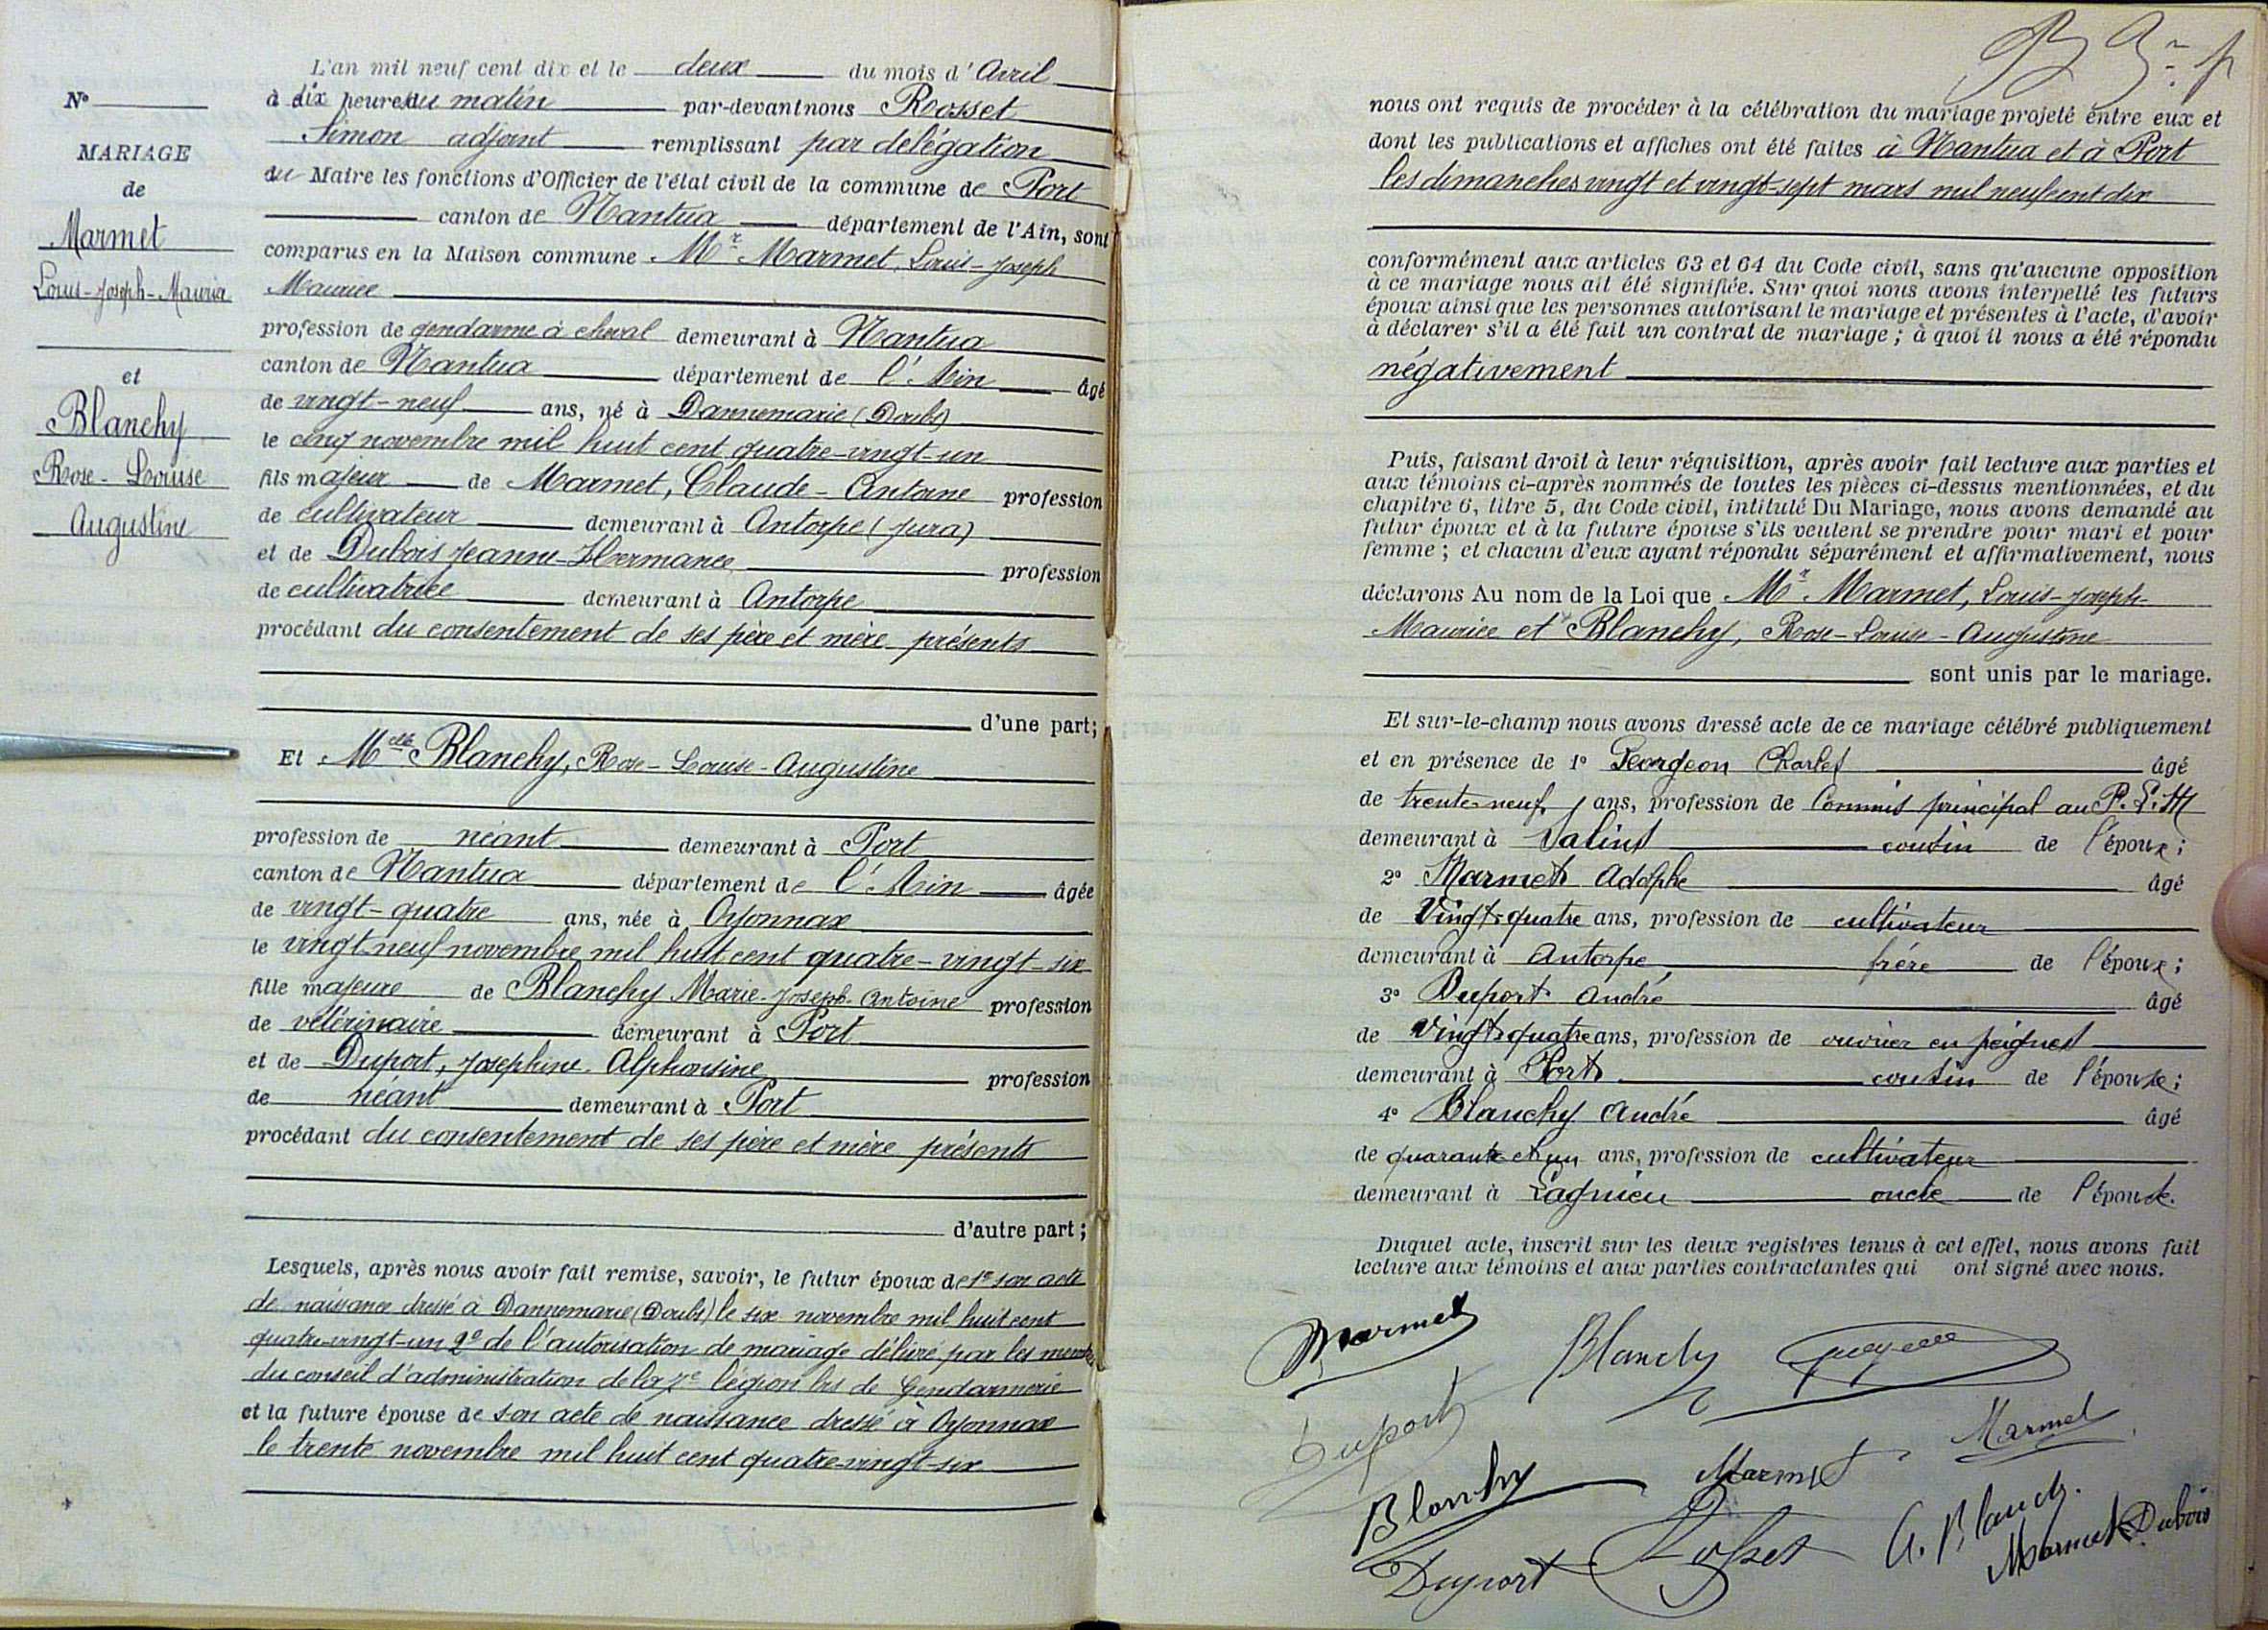 N°
MARIAGE
de
Marmet
Louis-Joseph-Mauria
et
Blanchy
Rose-Louise
Augustine
L'an mil neuf cent dix et le deux du mois d'Avril
à dix heures du matin par-devant nous Rosset
Simon adjoint remplissant par délégation
du Maire les fonctions d'Officier de l'état civil de la commune de Port
canton de Nantua département de l'Ain, sont
comparus en la Maison commune Mr Marmet, Louis-Joseph
Maurice
profession de gendarme à cheval demeurant à Nantua
canton de Nantua département de l'Ain âgé
de vingt-neuf ans, né à Dannemarie (Doubs)
le cinq novembre mil huit cent quatre-vingt-un
fils majeur de Marmet, Claude-Antoine profession
de cultivateur demeurant à Antorpe (Jura)
et de Dubois Jeanne-Hermance profession
de cultivatrice demeurant à Antorpe
procédant du consentement de ses père et mère présents
d'une part;
Et Melle Blanchy, Rose-Louise-Augustine
profession de néant demeurant à Port
canton de Nantua département de l'Ain âgée
de vingt-quatre ans, née à Oyonnax
le vingt-neuf novembre mil huit cent quatre-vingt-six
fille majeure de Blanchy Marie-Joseph-Antoine profession
de vétérinaire demeurant à Port
et de Duport, Joséphine-Alphonsine profession
de néant demeurant à Port
procédant du consentement de ses père et mère présents
d'autre part;
Lesquels, après nous avoir fait remise, savoir, le futur époux de 1° son acte
de naissance dressé à Dannemarie (Doubs) le six novembre mil huit cent
quatre-vingt-un 2° de l'autorisation de mariage délivré par les membres
du conseil d'administration de la 7e légion bis de Gendarmerie
et la future épouse de son acte de naissance dressé à Oyonnax
le trente novembre mil huit cent quatre-vingt-six
nous ont requis de procéder à la célébration du mariage projeté entre eux et
dont les publications et affiches ont été faites à Nantua et à Port
les dimanches vingt et vingt-sept mars mil neuf cent dix
conformément aux articles 63 et 64 du Code civil, sans qu'aucune opposition
à ce mariage nous ait été signifiée. Sur quoi nous avons interpellé les futurs
époux ainsi que les personnes autorisant le mariage et présentes à l'acte, d'avoir
à déclarer s'il a été fait un contrat de mariage ; à quoi il nous a été répondu
négativement
Puis, faisant droit à leur réquisition, après avoir fait lecture aux parties et
aux témoins ci-après nommés de toutes les pièces ci-dessus mentionnées, et du
chapitre 6, titre 5, du Code civil, intitulé Du Mariage, nous avons demandé au
futur époux et à la future épouse s'ils veulent se prendre pour mari et pour
femme ; et chacun d'eux ayant répondu séparément et affirmativement, nous
déclarons Au nom de la Loi que Mr Marmet, Louis-Joseph-
Maurice et Blanchy, Rose-Louise-Augustine
sont unis par le mariage.
Et sur-le-champ nous avons dressé acte de ce mariage célébré publiquement
et en présence de 1° Georgeon Charles âgé
de trente-neuf ans, profession de Commis principal au P.L.M
demeurant à Salins cousin de l'époux;
2° Marmet Adolphe âgé
de Vingt-quatre ans, profession de cultivateur
demeurant à Antorpe frère de l'époux;
3° Duport André âgé
de vingt-quatre ans, profession de ouvrier en peignes
demeurant à Port cousin de l'épouse;
4° Blanchy André âgé
de quarante et un ans, profession de cultivateur
demeurant à Lagnieu oncle de l'épouse.
Duquel acte, inscrit sur les deux registres tenus à cet effet, nous avons fait
lecture aux témoins et aux parties contractantes qui ont signé avec nous.
Marmet
Blanchy
Duport
Marmet
Blanchy
Marmet
A. Blanchy
Duport
Rosset
Marmet Dubois